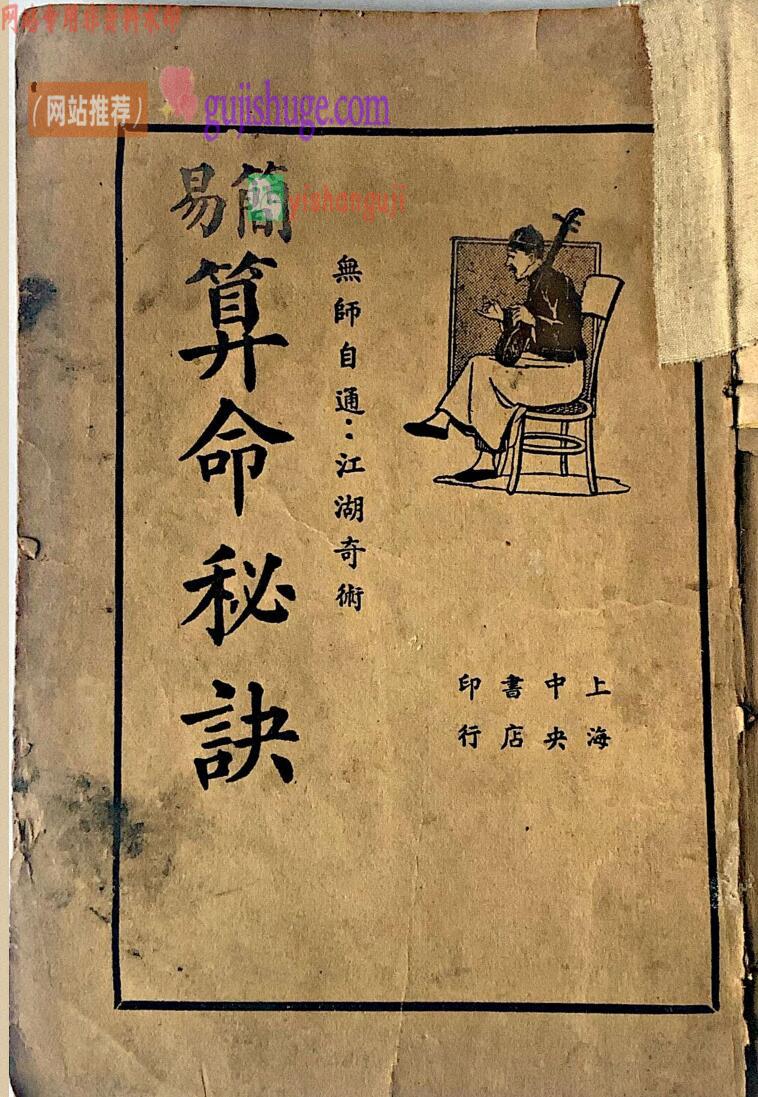 网站专用非资料水印
（网站推荐）
gujishuge.com
yishanguji
簡易
算命秘訣
無師自通：江湖奇術
上海
中央
書店
印行